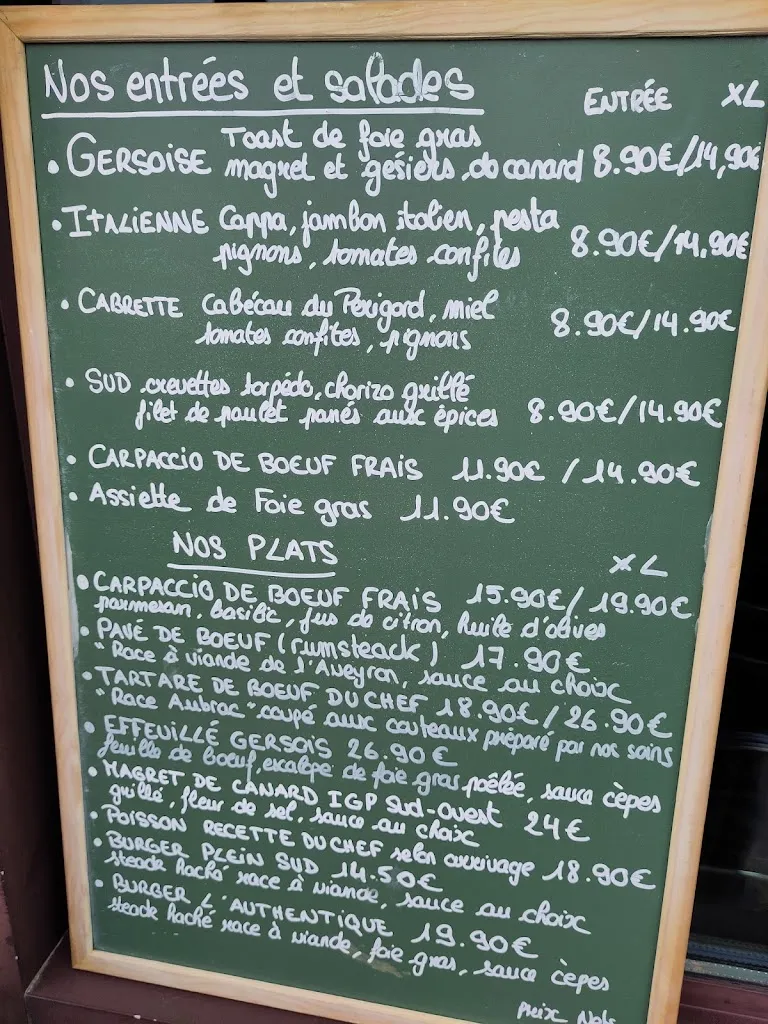 Nos entrées et salades
ENTRÉE XL
• GERSOISE Toast de foie gras
magret et gésiers de canard 8.90€/14,90€
• ITALIENNE Coppa, jambon italien, pesto
pignons, tomates confites 8.90€/14.90€
• CABRETTE Cabécou du Perigord, miel
tomates confites, pignons 8.90€/14.90€
• SUD crevettes torpédo, chorizo grillé
filet de poulet panés aux épices 8.90€/14.90€
• CARPACCIO DE BOEUF FRAIS 11.90€ /14.90€
• Assiette de Foie gras 11.90€
NOS PLATS
XL
• CARPACCIO DE BOEUF FRAIS 15.90€/19.90€
parmesan, basilic, jus de citron, huile d'olives
• PAVÉ DE BOEUF (rumsteack) 17.90€
"Race à viande de l'Aveyron, sauce au choix
• TARTARE DE BOEUF DU CHEF 18.90€/26.90€
"Race Aubrac" coupé aux couteaux préparé par nos soins
• EFFEUILLÉ GERSOIS 26.90€
feuille de boeuf, escalope de foie gras poêlée, sauce cèpes
• MAGRET DE CANARD IGP Sud-Ouest 24€
grillé, fleur de sel, sauce au choix
• POISSON RECETTE DU CHEF selon arrivage 18.90€
• BURGER PLEIN SUD 14.50€
steack haché race à viande, sauce au choix
• BURGER L'AUTHENTIQUE 19.90€
steack haché race à viande, foie gras, sauce cèpes
Prix Nets